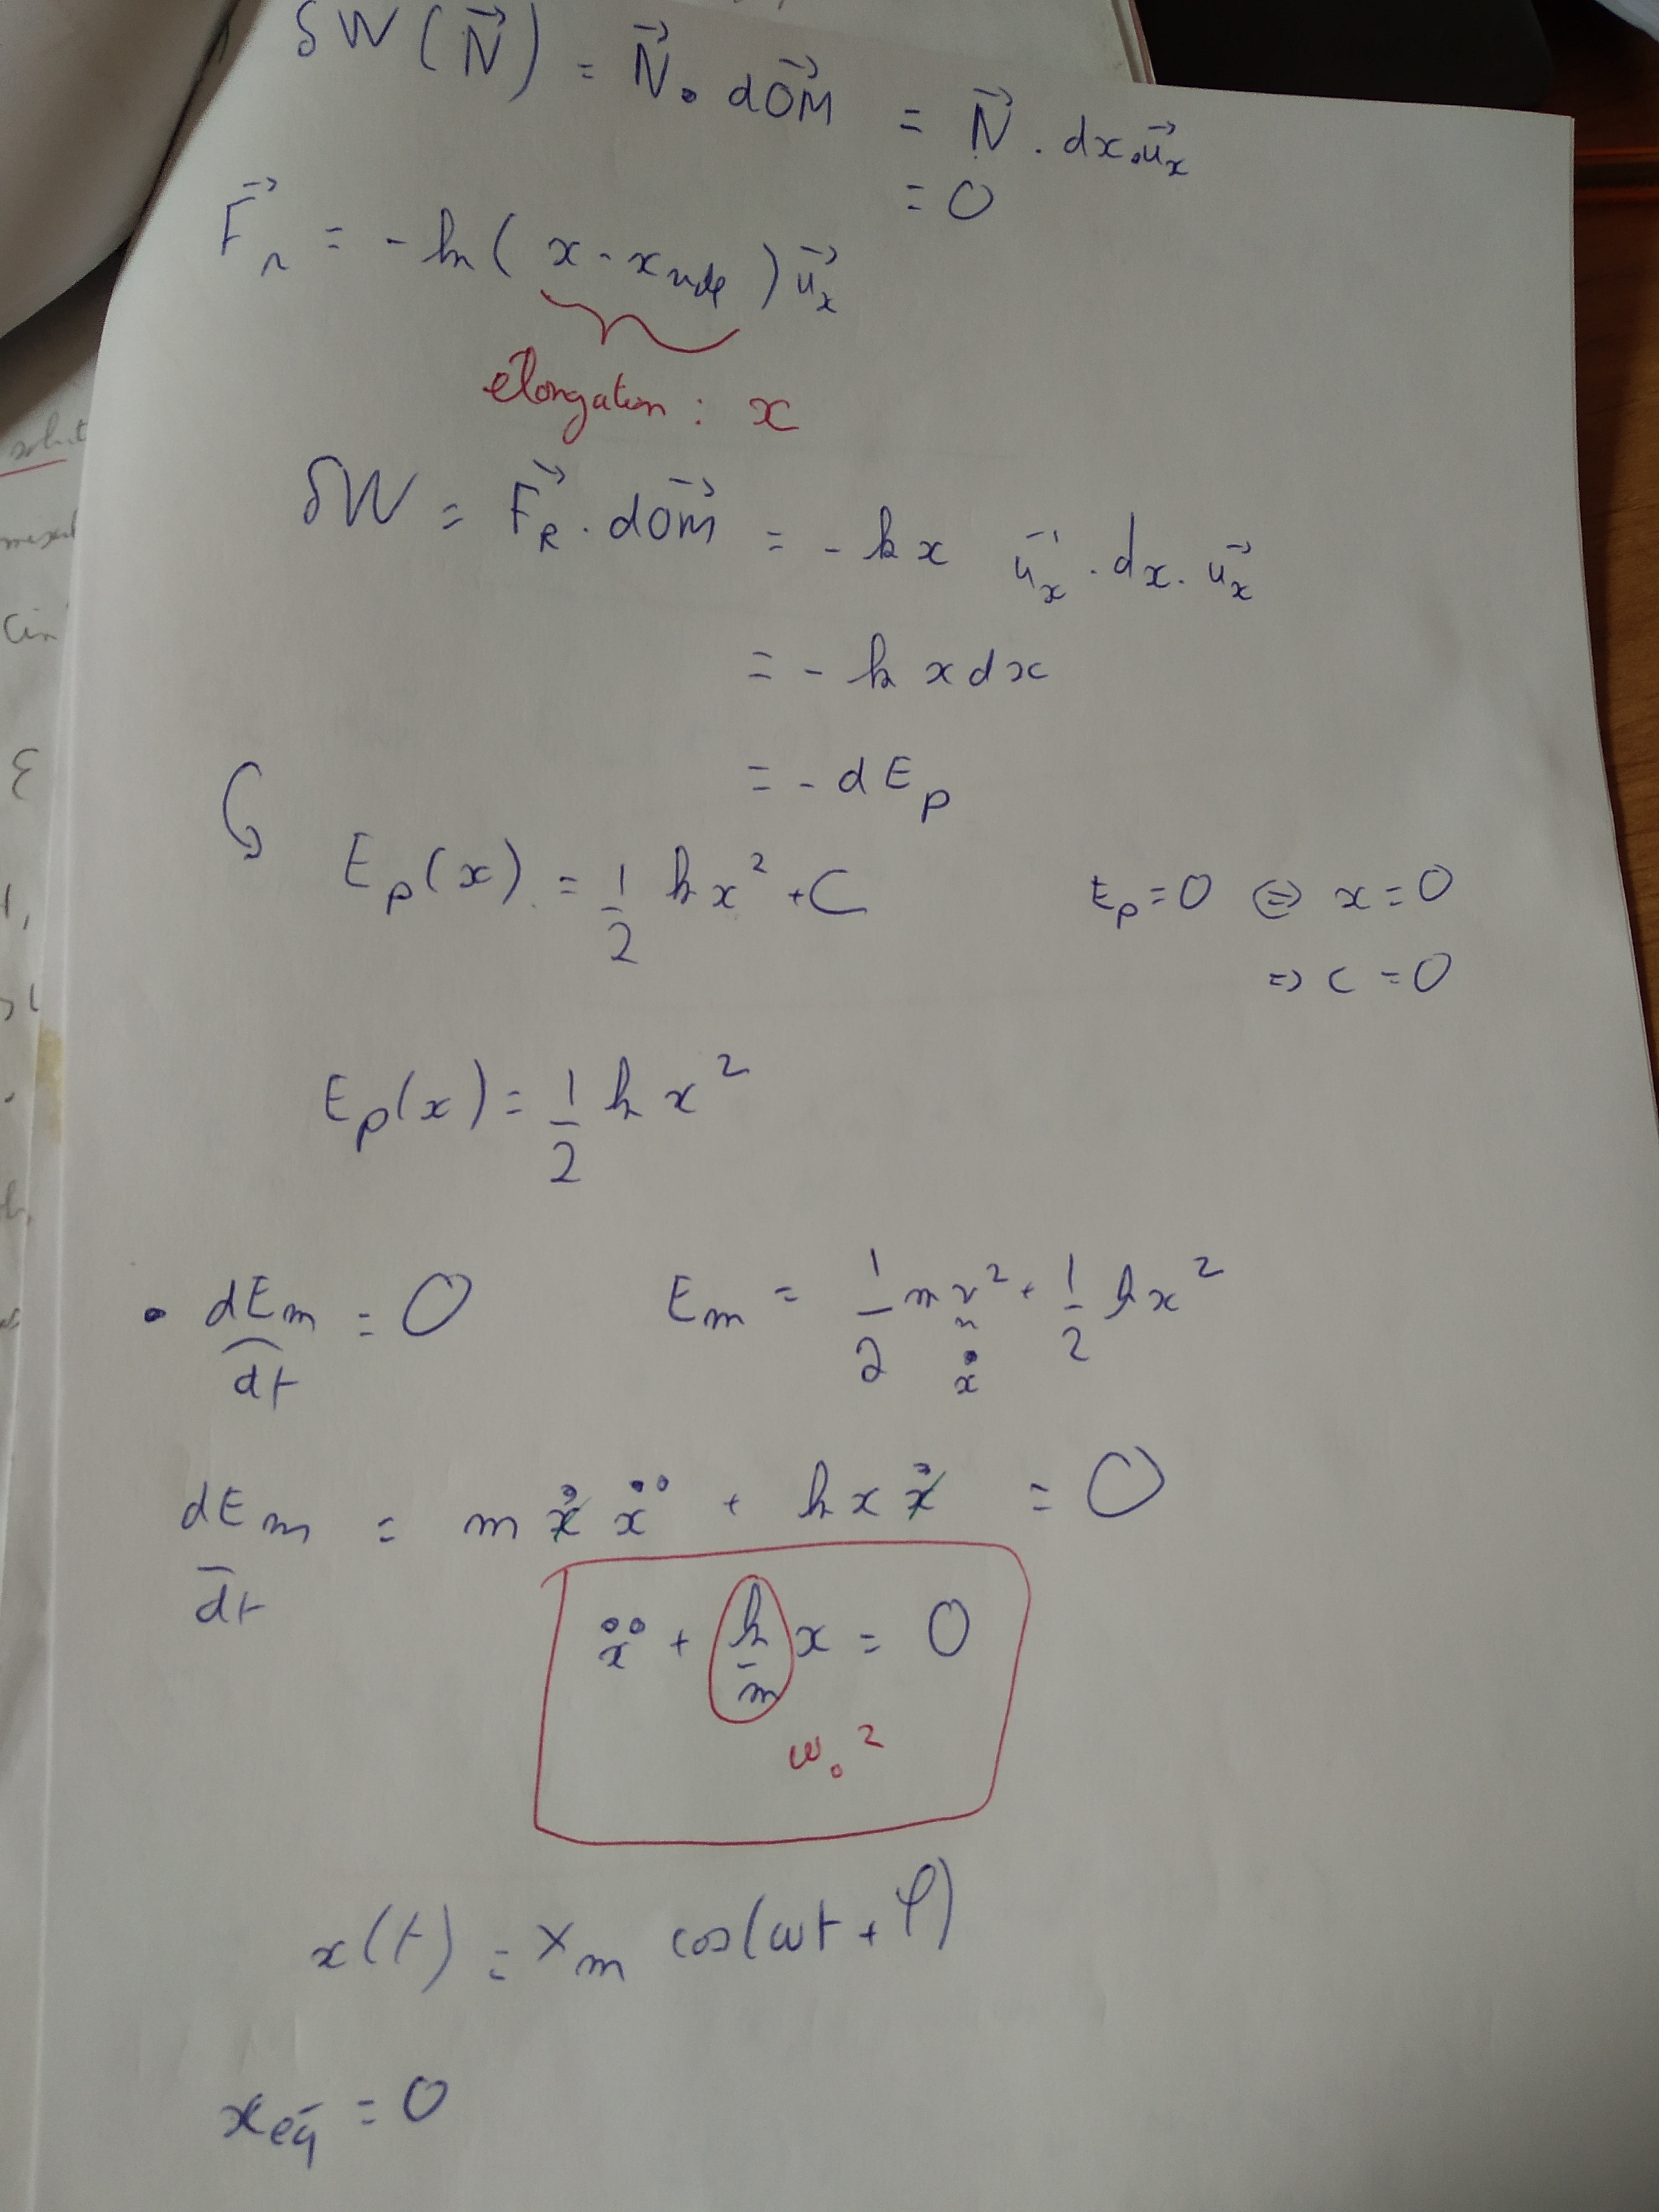 δW(N⃗) = N⃗ . dOM⃗ = N⃗ . dx . u⃗x
= 0
F⃗r = - k ( x - xvide ) u⃗x
elongation : x
δW = F⃗R . dOM⃗ = - k x u⃗x . dx . u⃗x
= - k x dx
= - d Ep
Ep(x) = 1/2 k x² + C Ep = 0 ⇔ x = 0
⇒ C = 0
Ep(x) = 1/2 k x²
• dEm/dt = 0 Em = 1/2 m v² + 1/2 k x²
ẋ
dEm/dt = m ẋ ẍ + k x ẋ = 0
ẍ + k/m x = 0
ω₀²
x(t) = Xm cos(ωt + φ)
xéq = 0